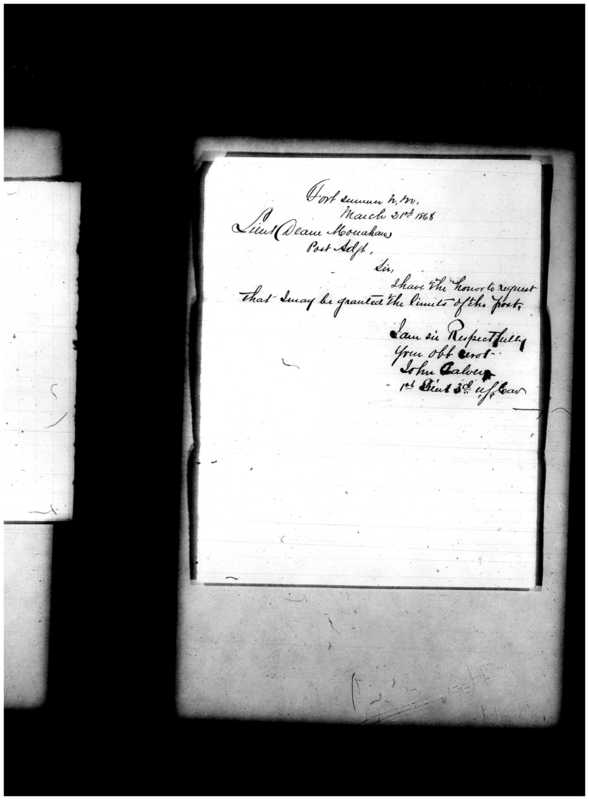 Fort Sumner N. M.
March 21st 1868
Lieut Deane Monahan
Post Adjt.
Sir,
I have the honor to request
that I may be granted the limits of the post.
I am sir Respectfully
Your obt servt
John
1st Lieut 3d U.S. Cav